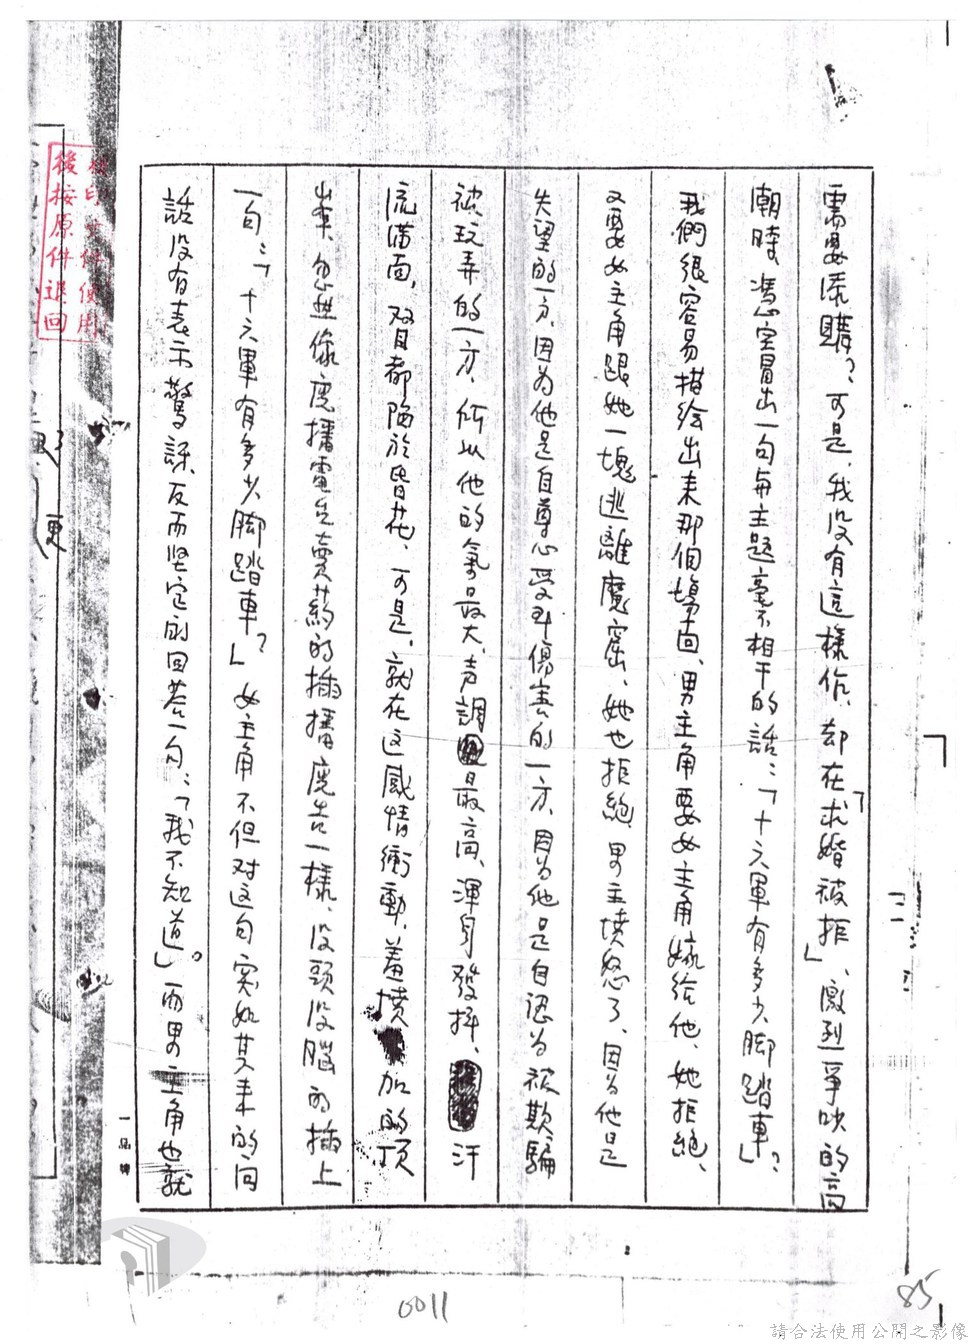 需要添購?、可是、我沒有這樣作、却在「求婚被拒」、激烈爭吵的高
潮時、憑空冒出一句與主題毫不相干的話:「十六軍有多少脚踏車」?
我們很容易描绘出来那個場面、男主角要女主角嫁给他、她拒絕、
又要女主角跟她一塊逃離魔窟、她也拒絕、男主憤怒了、因为他是
失望的一方、因为他是自尊心受到傷害的一方、因为他是自認为被欺騙
被玩弄的一方、所以他的氣最大、声調最高、渾身發抖、汗
流滿面、双目都陷於昏花、可是、就在这感情衝動、羞憤加的頂
峯、忽然像廣播電台賣药的插播廣告一樣、没頭没腦的插上
一句:「十六軍有多少脚踏車?」女主角不但对这句突如其来的问
話没有表示驚訝、反而坚定的回答一句:「我不知道」。而男主角也就
後按原件退回
一品牌
更
0011
85
請合法使用公開之影像